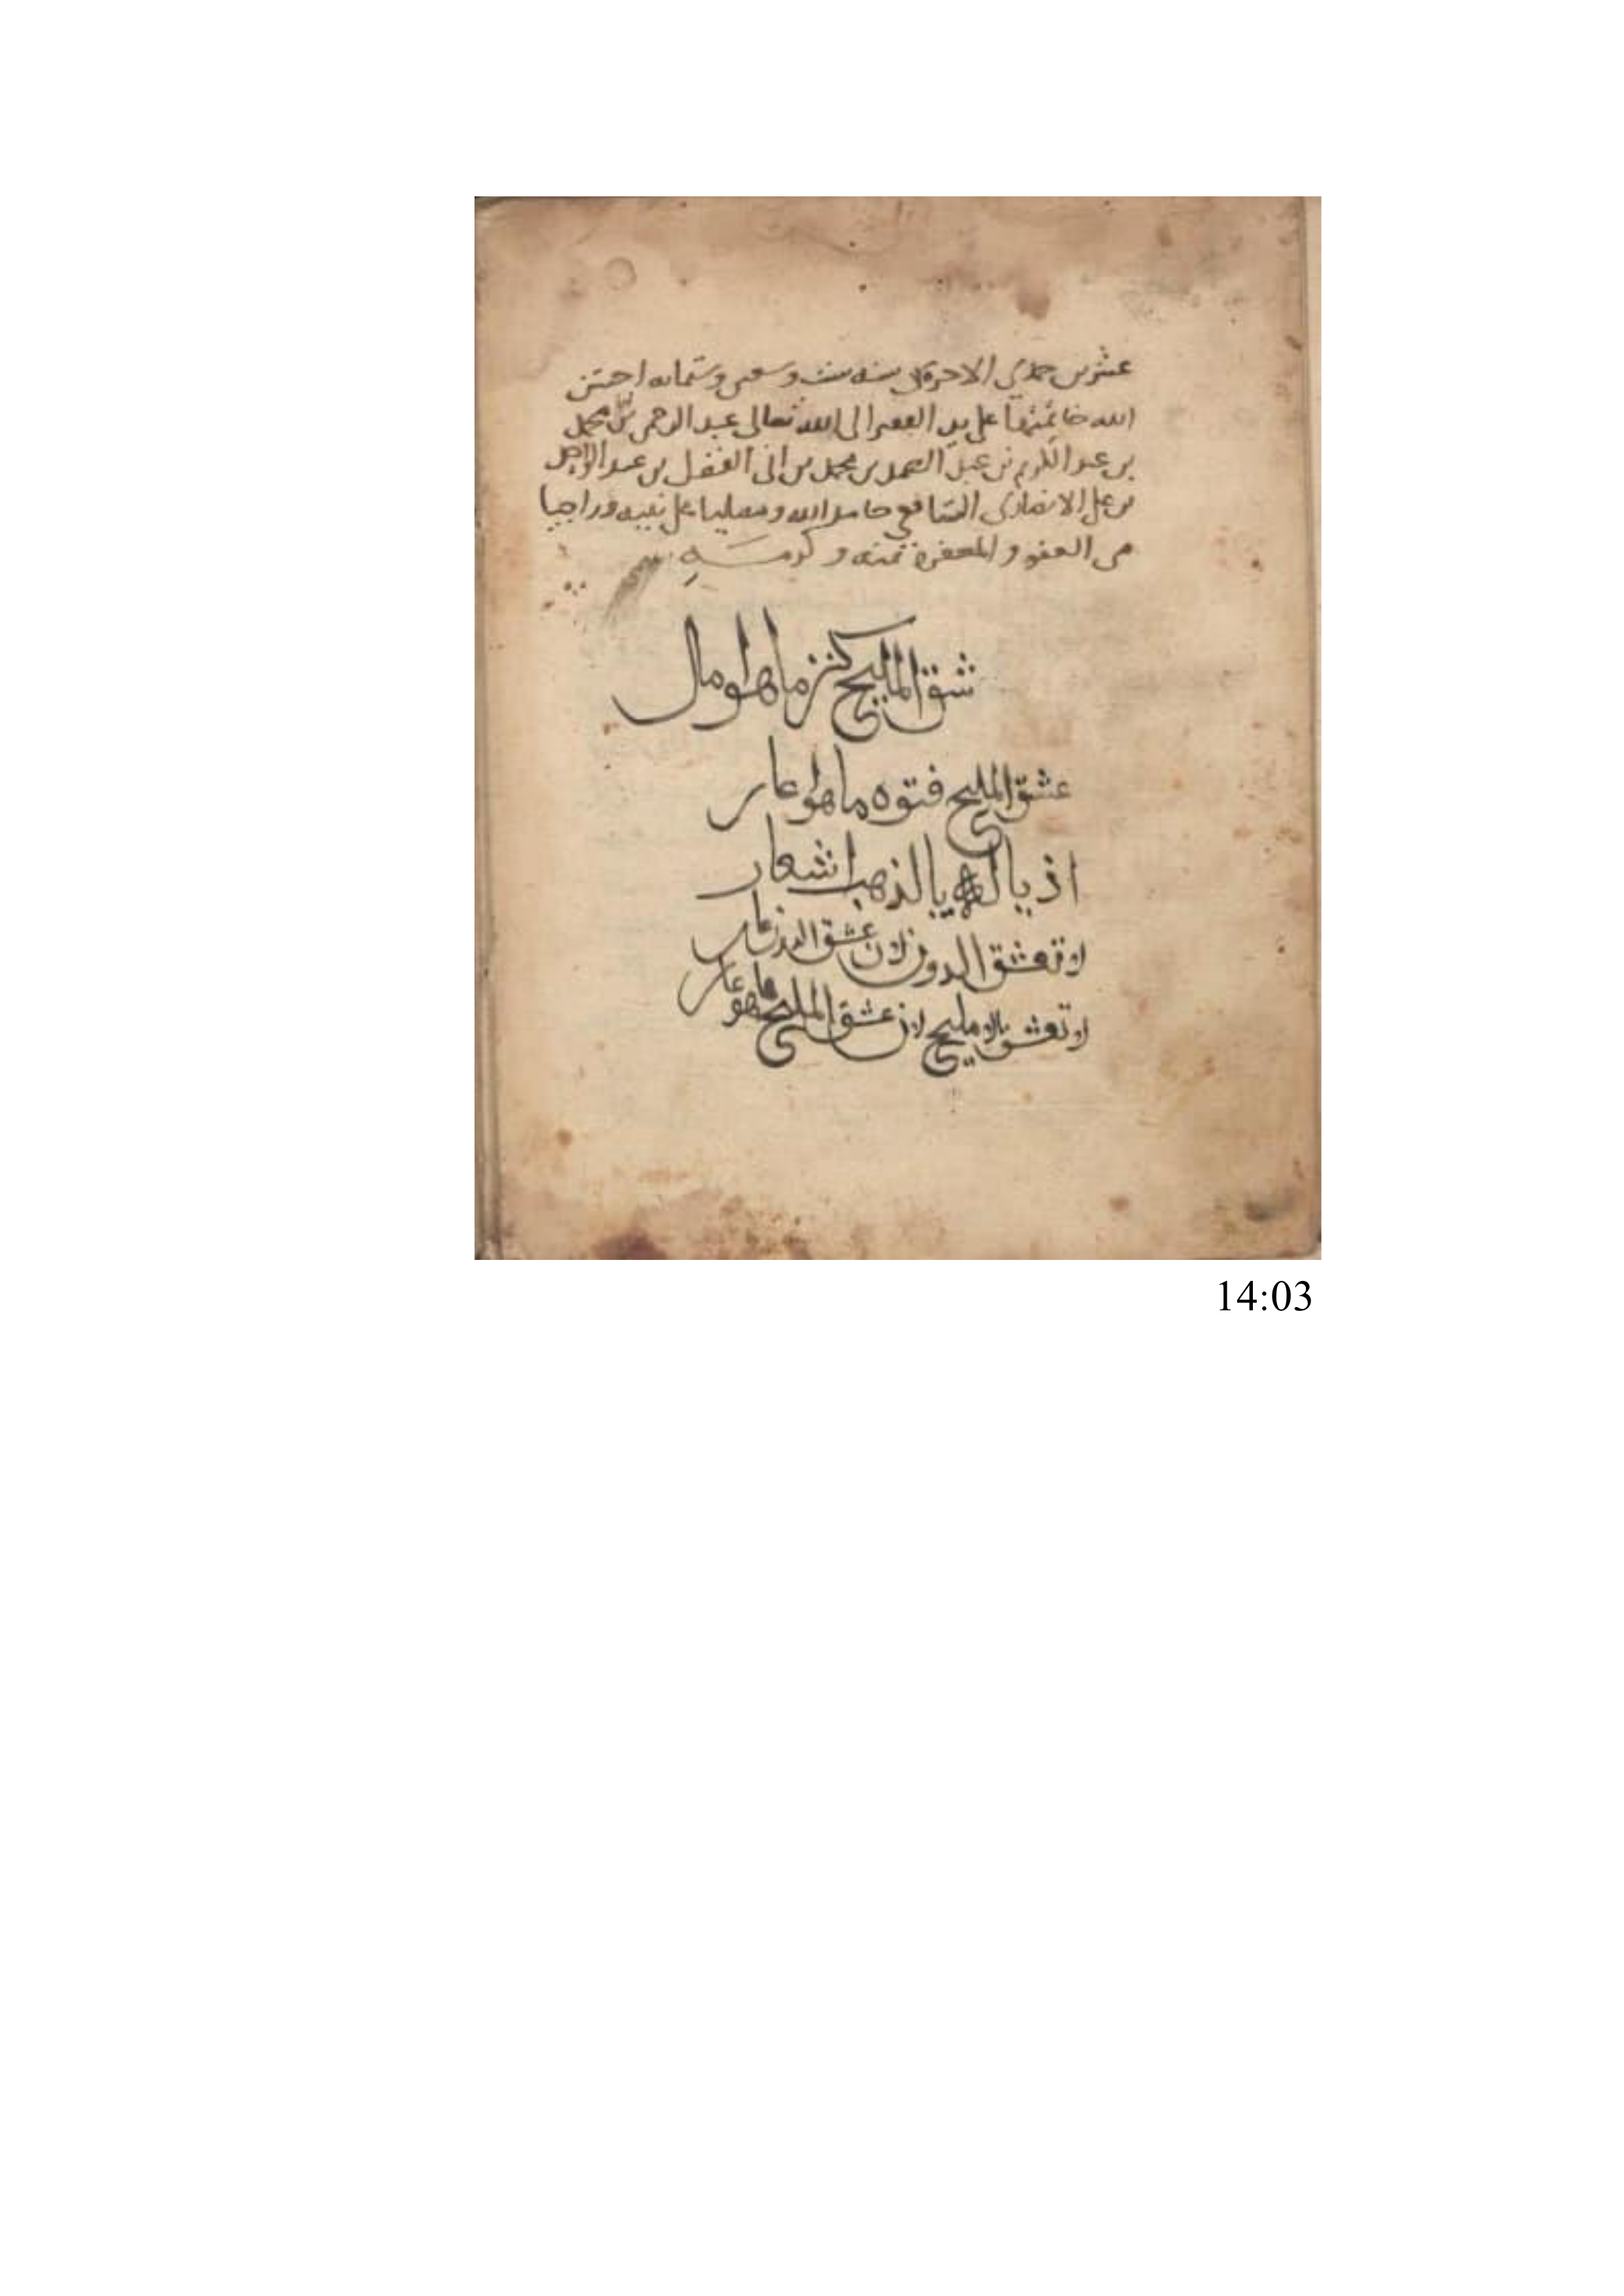 عشرين جمادى الاخرة سنة ست وسبعين وستمائه احسن
الله خاتمتها على يد الفقير الى الله تعالى عبد الرحمن بن محمد
بن عبد الكريم بن عبد الصمد بن محمد بن ابى الفضل بن عبد الواحد
بن على الانصارى الشافعي حامدا لله ومصليا على نبيه وراجيا
من العفو والمغفرة بمنه وكرمه
شق المليح كنز ما هوا مال
عشق المليح فتوه ما هوا عار
اذ يا يا لذهب اشعار
لا تعشق الدون لان عشق الدون عار
لا تعشق الا مليح لان عشق المليح ما هو عار
14:03